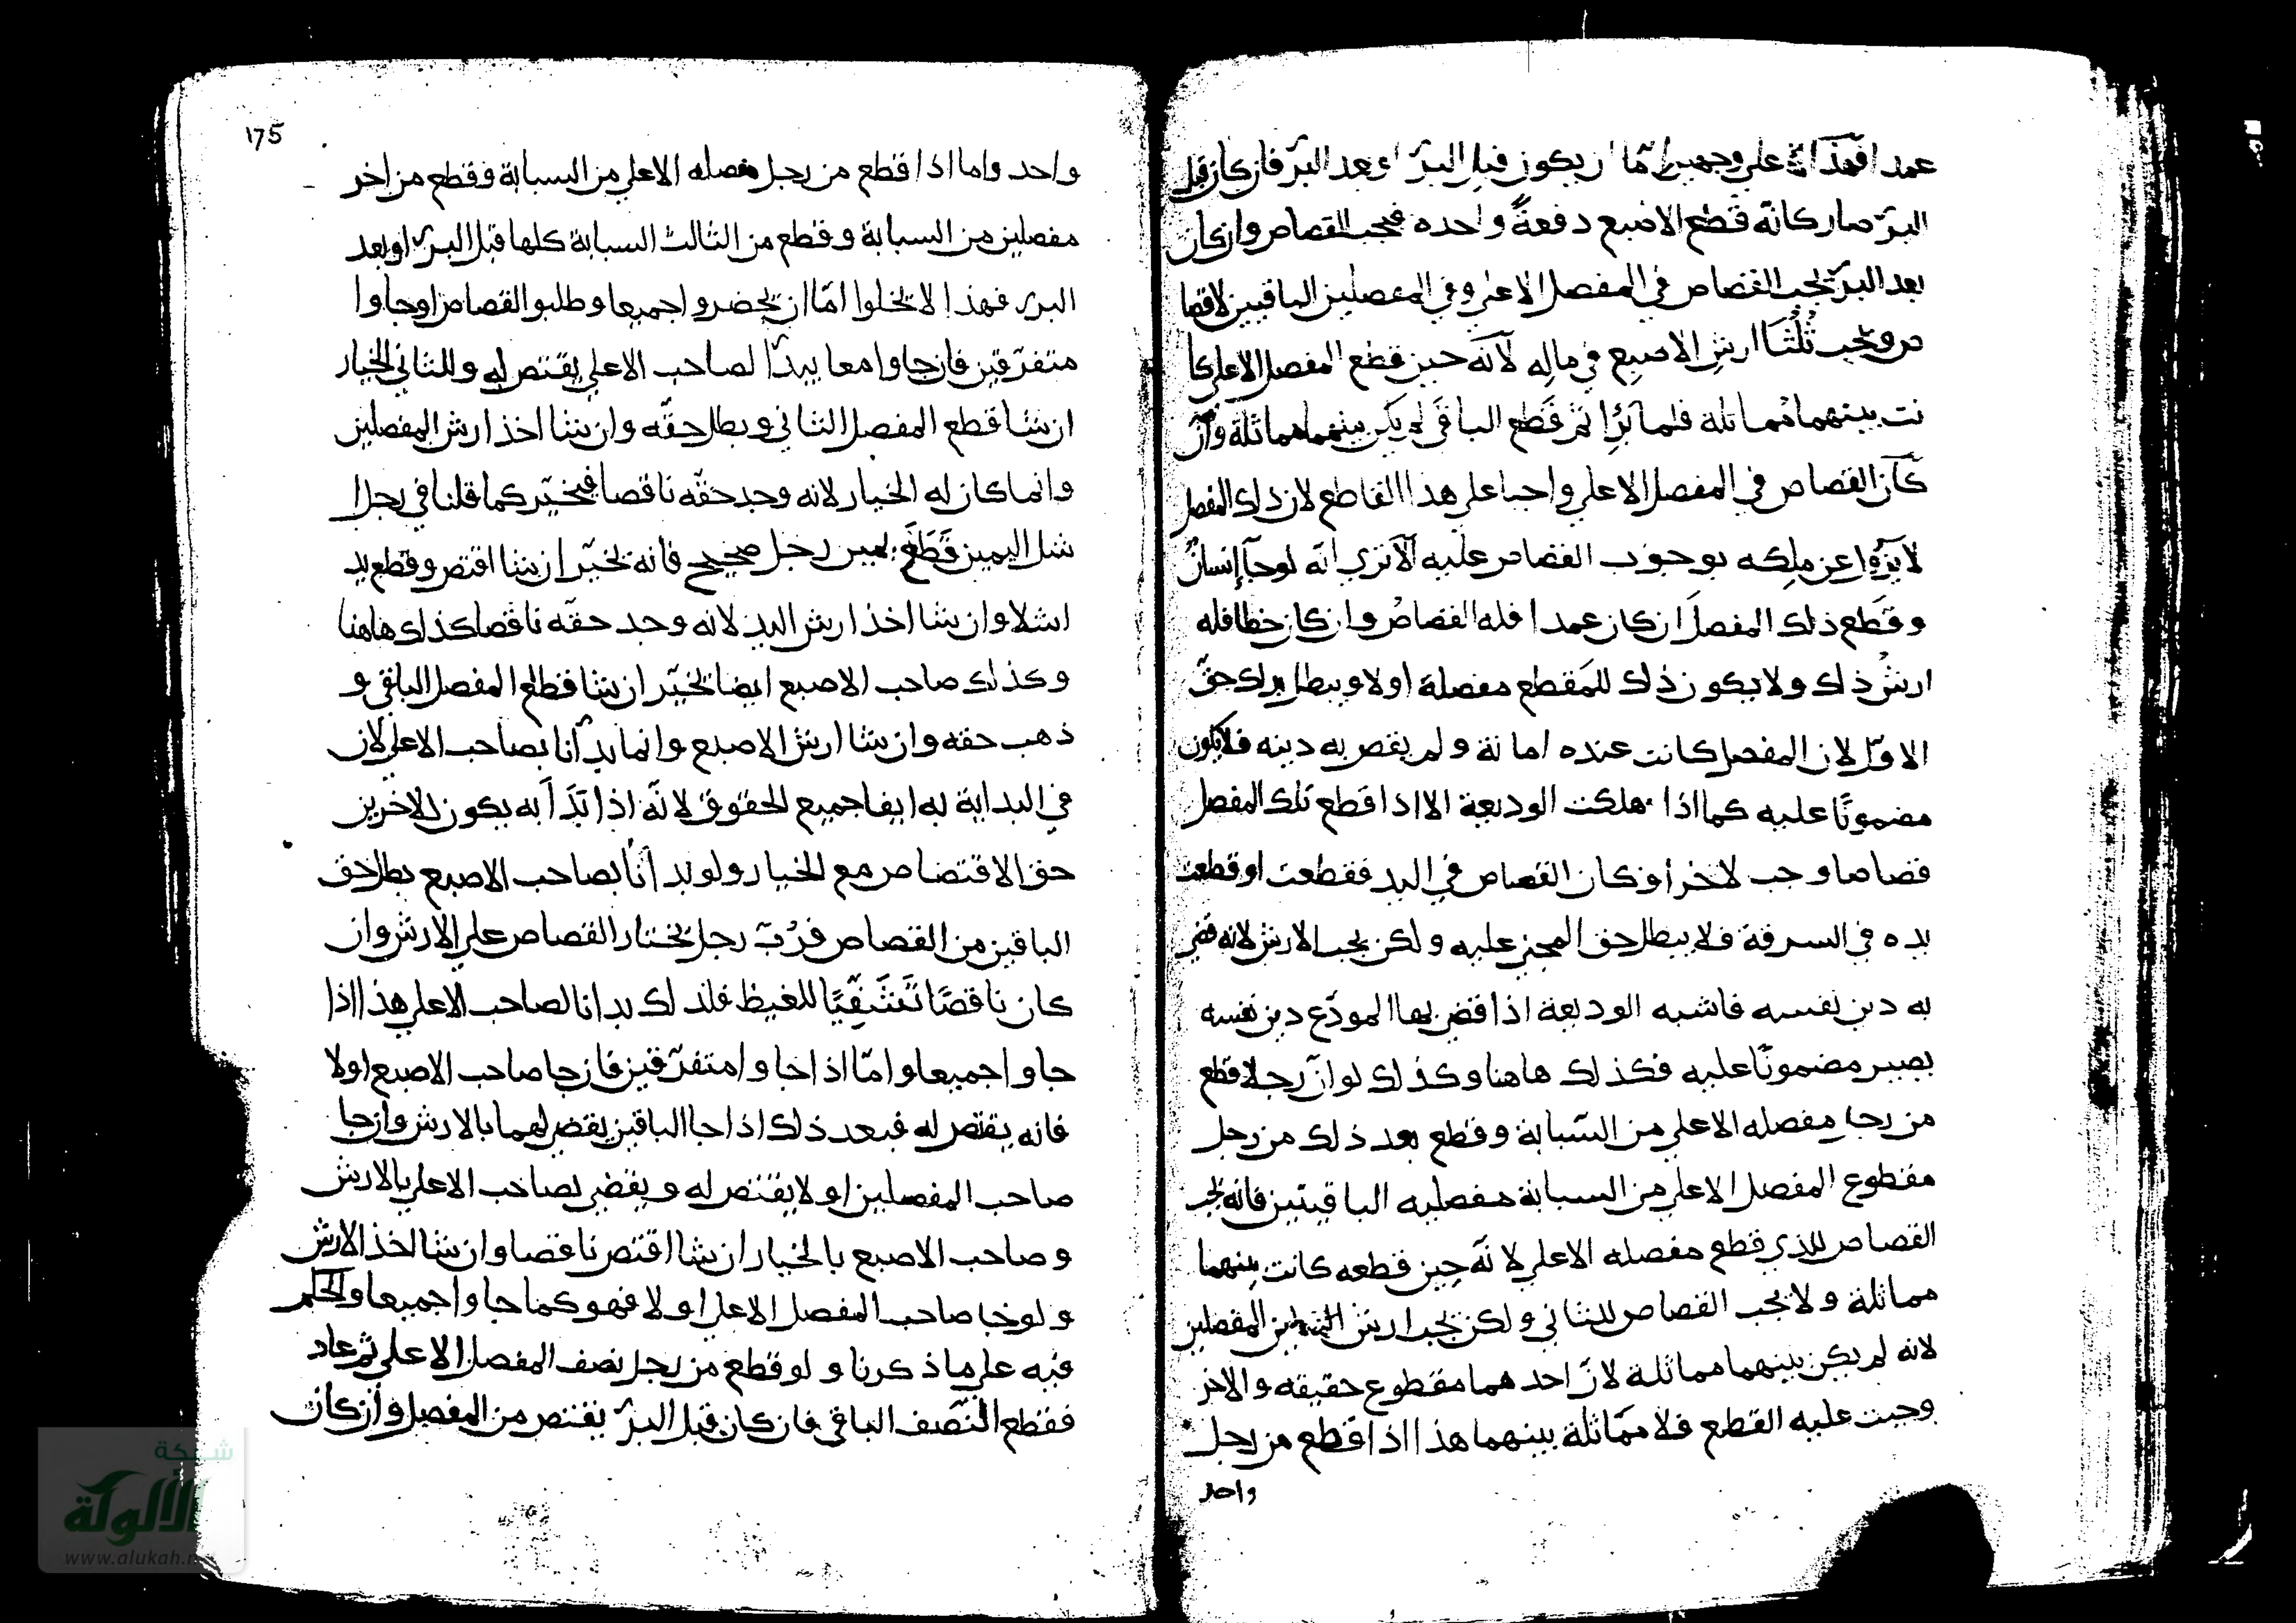 عمدا فهذا على وجهين اما ان يكون قبل البرّ او بعد البرّ فان كان قبل
البرّ صار كانّه قطع الاصبع دفعةً واحده فيجب القصاص وان كان
بعد البرّ يجب القصاص في المفصل الاعلى وفي المفصلين الباقيين لا قصا
ص ويجب ثُلُثَا ارشِ الاصبع في مالِه لانّه حين قطع المفصل الاعلى كا
نت بينهما مُماثلة فلما بَرَا ثم قَطع الباقي لم يكن بينهما مماثلة وان
كان القصاص في المفصل الاعلى واجبا على هذا القاطع لان ذلك المفصل
لا يزوا عن ملِكه بوجوب القصاص عليه الا ترى انّه لوجا إنسانٌ
وقَطع ذلك المفصل ان كان عمدا فله القصاصُ وان كان خطا فله
ارشُ ذلك ولا يكون ذلك للمَقطع مفصلة اولا ويبطل بذلك حقّ
الاوّل لان المفصل كانت عنده امانة ولم يقص به دينه فلا يكون
مضمونًا عليه كما اذا هلكت الوديعة الا اذا قطع تلك المفصل
قصاصا وجب لاخر أو كان القصاص في اليد فقطعت او قطعت
يده في السرقة فلا يبطل حق المجني عليه ولكن يجب الارش لانه قضى
به دين نفسه فاشبه الوديعة اذا قضى بها المودَع دين نفسه
يصير مضمونًا عليه فكذلك هاهنا وكذلك لو انّ رجلا قطع
من رجل مفصله الاعلى من السّبابة وقطع بعد ذلك من رجل
مقطوع المفصل الاعلى من السبابة مفصليه الباقيتين فانه يجب
القصاص للذي قطع مفصله الاعلى لانّه حين قطعه كانت بينهما
مماثلة ولا يجب القصاص للثاني ولكن يجب ارش المفصلين
لانه لم يكن بينهما مماثلة لانّ احدهما مقطوع حقيقه والاخر
وجبت عليه القطع فلا ممّاثلة بينهما هذا اذا قطع من رجل
واحد
175
واحد واما اذا قطع من رجل مفصله الاعلى من السبابة وقطع من اخر
مفصلين من السبابة وقطع من الثالث السبابة كلها قبل البرّ او بعد
البرّ فهذا لا يخلوا امّا ان يحضروا جميعا وطلبو القصاص او جاوا
متفرّقين فان جاوا معا يبدّا لصاحب الاعلى يقتص له وللثاني الخيار
ان شا قطع المفصل الثاني وبطل حقّه وان شا اخذ ارش المفصلين
وانما كان له الخيار لانه وجد حقّه ناقصا فيخيّر كما قلنا في رجل ا
شل اليمين قَطَعَ يمين رجل صحيح فانه يخيّر ان شا اقتص وقطع يد
اشلا وان شا اخذ ارش اليد لانه وجد حقّه ناقصا كذلك هاهنا
وكذلك صاحب الاصبع ايضا يخيّر ان شا قطع المفصل الباقي و
ذهب حقه وان شا ارش الاصبع وانما بدانا بصاحب الاعلى لان
في البداية به ايفا جميع الحقوق لانّه اذا بَدَا به يكون للاخرين
حق الاقتضاص مع الخيار ولو بدانا بصاحب الاصبع بطل حق
الباقين من القصاص فرُبّ رجل يختار القصاص على الارش وان
كان ناقصًا تَشَفّيًا للغيظ فلذلك بدانا لصاحب الاعلى هذا اذا
جاوا جميعا وامّا اذا جاوا متفرّقين فان جا صاحب الاصبع اولا
فانه يقتص له فبعد ذلك اذا جا الباقين يقضى لهما بالارش وان جا
صاحب المفصلين اولا يقتص له ويقضى لصاحب الاعلى بالارش
وصاحب الاصبع بالخيار ان شا اقتص ناقصا وان شا اخذ الارش
ولو جا صاحب المفصل الاعلى اولا فهو كما جاوا جميعا والحكم
فيه على ما ذكرنا ولو قطع من رجل نصف المفصل الاعلى ثم عاد
فقطع النّصف الباقي فان كان قبل البرّ يقتص من المفصل وان كان
شبكة
الألوكة